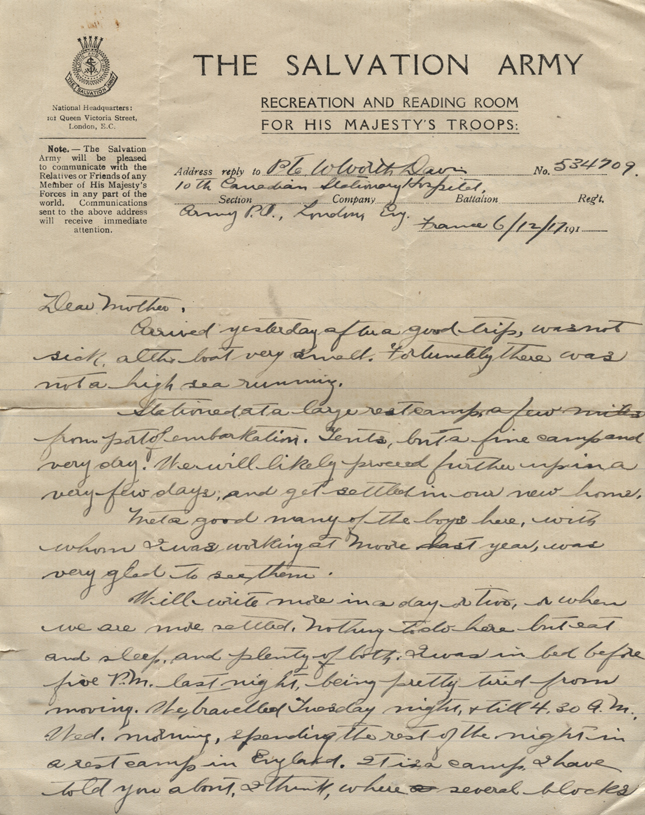 THE SALVATION ARMY
RECREATION AND READING ROOM
FOR HIS MAJESTY'S TROOPS:
THE SALVATION ARMY
National Headquarters:
101 Queen Victoria Street,
London, E.C.
Note.—The Salvation
Army will be pleased
to communicate with the
Relatives or Friends of any
Member of His Majesty's
Forces in any part of the
world. Communications
sent to the above address
will receive immediate
attention.
Address reply to Pte W Worth Davis No. 534709.
10th Canadian Stationary Hospital,
Section Company Battalion Reg't.
Army P.O., London, Eng.
France 6/12/17 191
Dear Mother.
Arrived yesterday after a good trip, was not
sick, altho boat very small. Fortunately there was
not a high sea running.
Stationed at a large rest camp, a few miles
from port of embarkation. Tents, but a fine camp and
very dry. We will likely proceed further up in a
very few days, and get settled in our new home.
Met a good many of the boys here, with
whom I was working at Moore last year, was
very glad to see them.
Will write more in a day or two, or when
we are more settled. Nothing to do here but eat
and sleep, and plenty of both. I was in bed before
five P.M. last night, being pretty tired from
moving. We travelled Tuesday night, + till 4.30 A.M.
Wed. morning, spending the rest of the night in
a rest camp in England. It is a camp I have
told you about, I think, where several blocks